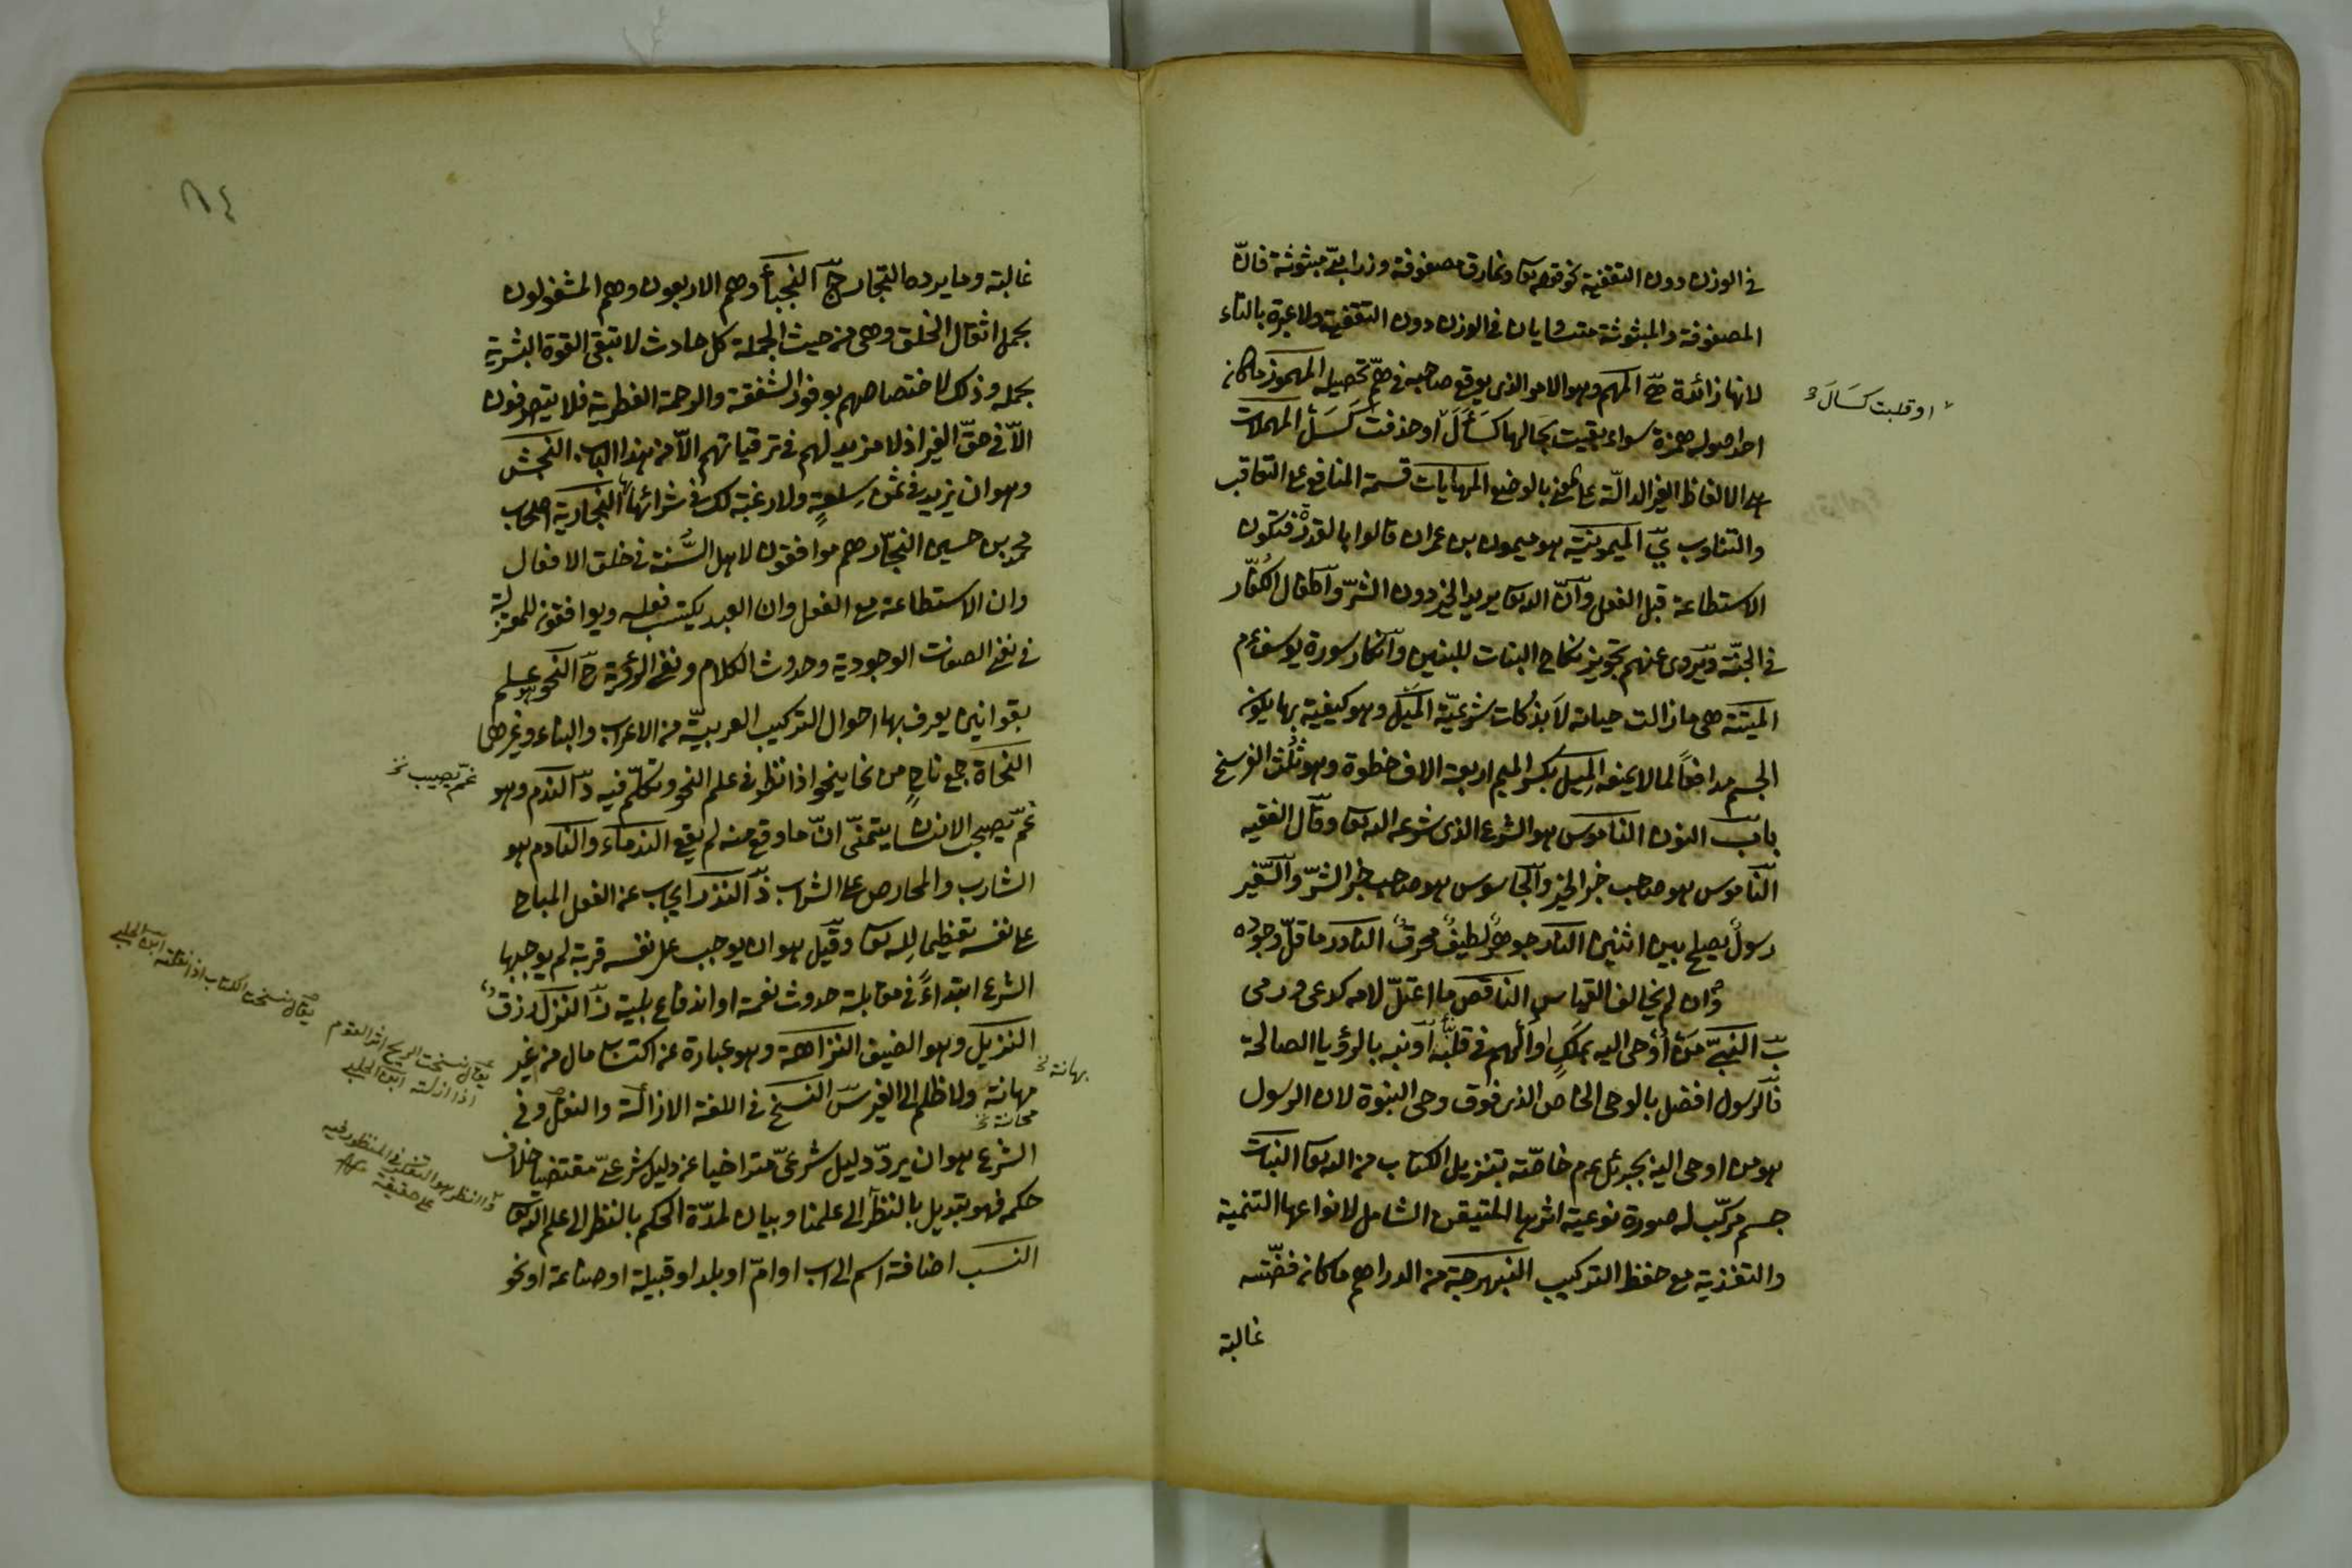 في الوزن دون التقفية نحو قوله تعا ونمارق مصفوفة وزرابيّ مبثوثة فانّ
المصفوفة والمبثوثة متساويان في الوزن دون التقفية ولا عبرة بالتاء
لانها زائدة المهم وهو الامر الذى يوقع صاحبه في همّ تحصيله المهموز ما كان
احد اصوله همزة سواء بقيت بحالها كسَأَلَ او حذفت كسَلْ المهملات
هى الالفاظ الغير الدالّة على معنى بالوضع المهايات قسمة المنافع على التعاقب
والتناوب يّ الميمونيّة هو ميمون بن عمران قالوا بالقدر فتكون
الاستطاعة قبل الفعل وانّ الله تعا يريد الخير دون الشرّ واطفال الكفّار
في الجنّة ويروى عنهم تجويز نكاح البنات للبنين وانكار سورة يوسف عم
الميتة هى ما زالت حياته لا بذكات شرعيّة الميل وهو كيفية بها يكون
الجسم مدافعاً لما لا يمنعه الميل بكسر الميم اربعة الاف خطوة وهو ثُلُث الفرسخ
باب النون الناموس هو الشرع الذى شرعه الله تعا وقال الفقيه
النّاموس هو صاحب خبر الخير والجاسوس هو صاحب خبر الشرّ والسّفير
رسولٌ يصلح بين اثنين النار جوهرٌ لطيفٌ محرقٌ النادر ما قلّ وجوده
وان لم يخالف القياس الناقص ما اعتلّ لامه كدعى ورمى
بّ النبيّ من اُوحى اليه بملَكٍ او اُلهم في قلبه او نبّه بالرؤيا الصالحة
فالرسول افضل بالوحى الخاص الذى فوق وحى النبوة لان الرسول
هو من اوحى اليه بجبرئل عم خاصّة بتنزيل الكتاب من الله تعا النبات
جسم مركّب له صورة نوعية اثرها المتيقن الشامل لانواعها التنمية
والتغذية مع حفظ التركيب النبهرجة من الدراهم ما كانه فضّته
غالبة
او قلبت كسَالَ
غالبة وما يرده التجار جّ النجباء وهم الاربعون وهم المشغولون
بحمل اثقال الخلق وهى من حيث الجملة كل حادث لا تبقى القوة البشرية
بحمله وذلك لاختصاصهم بوفور الشفقة والرحمة الفطرية فلا يتصرفون
الاّ في حقّ الغير اذ لا مزيد لهم في ترقياتهم الاّ من هذا الباب النجش
وهو ان يزيد في ثمن سلعةٍ ولا رغبة لك في شرائها النجارية اصحاب
محمد بن حسين النجّار وهم موافقون لاهل السُّنة في خلق الافعال
وان الاستطاعة مع الفعل وان العبد يكتسب فعله ويوافقون للمعتزلة
في نفي الصفات الوجودية وحدوث الكلام ونفي الرؤية حّ النحو هو علم
بقوانين يعرف بها احوال التركيب العربيّة من الاعراب والبناء وغيرهما
النحاة جمع ناحٍ من نحا ينحو اذا نظر في علم النحو وتكلّم فيه دّ الندم وهو
غمّ يصحب الانسان يتمنّى انّ ما وقع منه لم يقع الندماء والنادم هو
الشارب والمحارص على الشراب ذّ النذر ايجاب عن الفعل المباح
على نفسه تعظيما لله تعا وقيل هو ان يوجب على نفسه قربة لم يوجبها
الشرع ابتداءً في مقابلة حدوث نعمة او اندفاع بلية زّ النزل رزق
النزيل وهو الضيف النزاهة وهو عبارة عن اكتساب مال من غير
مهانة ولا ظلم الى الغير سّ النسخ في اللغة الازالة والنقل وفي
الشرع هو ان يردّ دليل شرعىّ متراخيا عن دليل شرعىّ مقتضيا خلاف
حكمه فهو تبديل بالنظر الى علمنا وبيان لمدّة الحكم بالنظر الى علم الله تعا
النسب اضافة اسم الى اب او امّ او بلد او قبيلة او صناعة او نحو
غمّ يصيب نخ
بهانة نخ
يقال نسخت الكتاب اذا نقلته
يقال نسخت الريح اثر القوم
اذا ازلته
النظر هو التفكر في المنظور فيه
على حقيقة